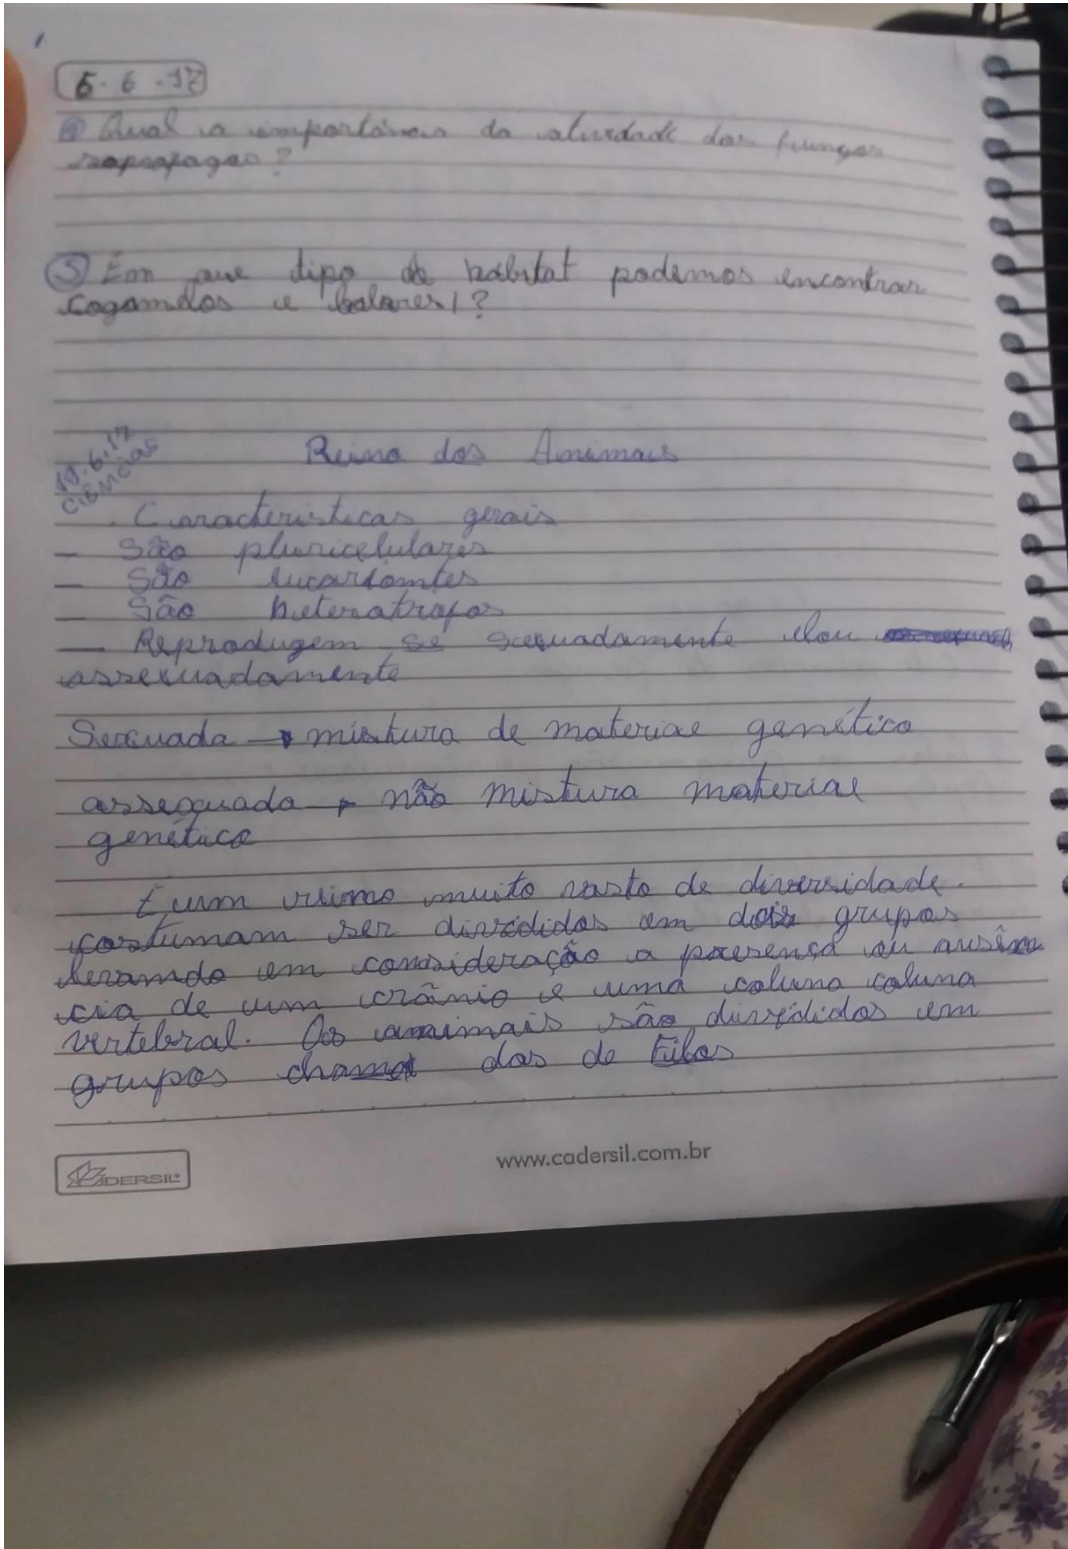 5.6.17
4 Qual a importância da atividade dos fungos
sapofagos?
5 Em que tipo de hábitat podemos encontrar
cogamelos e
19.6.17
CIÊNCIAS
Reino dos Animais
. Caracteristicas gerais
— São pluricelulares
— São eucariontes
— São heterotrofos
— Reprodugem se sexuadamente e/ou
assexuadamente
Sexuada → mistura de material genético
assequada → não mistura material
genético
É um reino muito vasto de diversidade.
costumam ser divididos em dois grupos
levando em consideração a presença ou ausên
cia de um crânio e uma coluna coluna
vertebral. Os animais são divididos em
grupos chama das de Filos
CADERSIL
www.cadersil.com.br